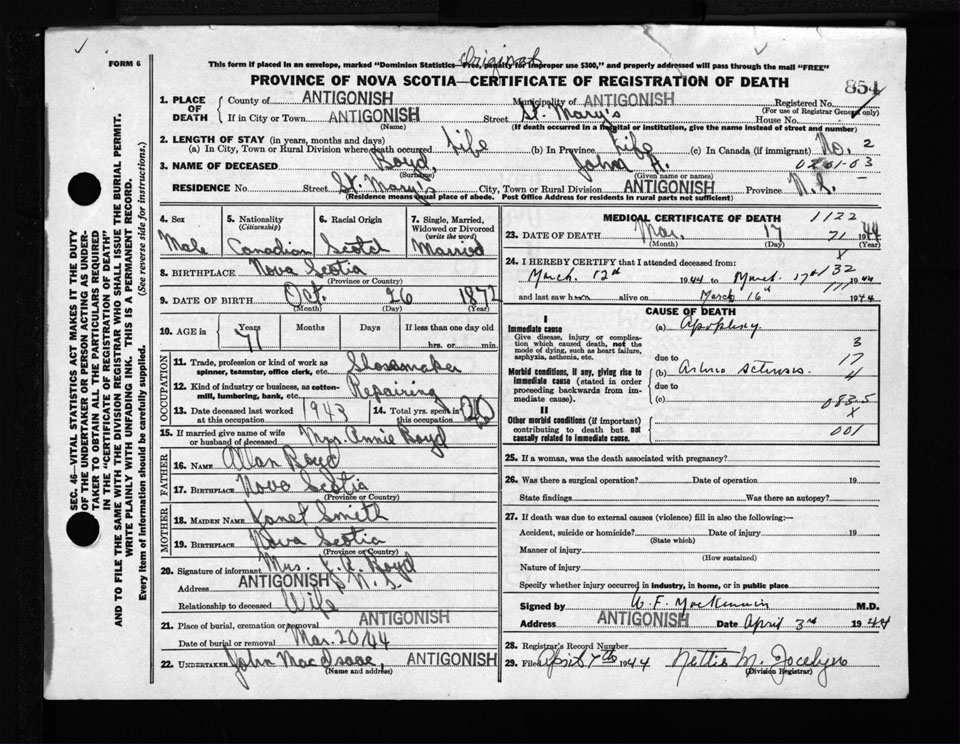 FORM 6
Original
This form if placed in an envelope, marked "Dominion Statistics—Free, penalty for improper use $300," and properly addressed will pass through the mail "FREE"
PROVINCE OF NOVA SCOTIA—CERTIFICATE OF REGISTRATION OF DEATH
854
1. PLACE OF DEATH
County of ANTIGONISH Municipality of ANTIGONISH Registered No.
(For use of Registrar General only)
If in City or Town ANTIGONISH Street St. Mary's House No.
(Name) (If death occurred in a hospital or institution, give the name instead of street and number)
2. LENGTH OF STAY (in years, months and days)
(a) In City, Town or Rural Division where death occurred Life (b) In Province Life (c) In Canada (if immigrant) No. 2
3. NAME OF DECEASED Boyd, John H. 0201-03
(Surname) (Given name or names)
RESIDENCE No. Street St. Mary's City, Town or Rural Division ANTIGONISH Province N.S.
(Residence means usual place of abode. Post Office Address for residents in rural parts not sufficient)
4. Sex Male
5. Nationality (Citizenship) Canadian
6. Racial Origin Scotch
7. Single, Married, Widowed or Divorced (write the word) Married
8. BIRTHPLACE Nova Scotia
(Province or Country)
9. DATE OF BIRTH Oct. 26 1872
(Month) (Day) (Year)
10. AGE in Years Months Days If less than one day old
71 hrs. or min.
OCCUPATION
11. Trade, profession or kind of work as spinner, teamster, office clerk, etc.
12. Kind of industry or business, as cotton-mill, lumbering, bank, etc. Repairing
13. Date deceased last worked at this occupation 1943
14. Total yrs. spent in this occupation 20
15. If married give name of wife or husband of deceased Mrs. Annie Boyd
FATHER
16. NAME Allan Boyd
17. BIRTHPLACE Nova Scotia
(Province or Country)
MOTHER
18. MAIDEN NAME Janet Smith
19. BIRTHPLACE Nova Scotia
(Province or Country)
20. Signature of informant Mrs. J. H. Boyd
Address ANTIGONISH N.S.
Relationship to deceased Wife
21. Place of burial, cremation or removal ANTIGONISH
Date of burial or removal Mar. 20/44
22. UNDERTAKER John MacIsaac, ANTIGONISH
(Name and address)
MEDICAL CERTIFICATE OF DEATH 1122
23. DATE OF DEATH Mar. 17 71 1944
(Month) (Day) (Year)
24. I HEREBY CERTIFY that I attended deceased from:
March 12th 1944 to March 17th 1944
and last saw h alive on March 16th 1944
CAUSE OF DEATH
I
Immediate cause
Give disease, injury or complication which caused death, not the mode of dying, such as heart failure, asphyxia, asthenia, etc.
(a) Apoplexy
3
due to 17
Morbid conditions, if any, giving rise to immediate cause (stated in order proceeding backwards from immediate cause).
(b) 4
due to
(c) 083.5
X
II
Other morbid conditions (if important) contributing to death but not causally related to immediate cause.
001
25. If a woman, was the death associated with pregnancy?
26. Was there a surgical operation? Date of operation 19
State findings Was there an autopsy?
27. If death was due to external causes (violence) fill in also the following:—
Accident, suicide or homicide? Date of injury 19
(State which)
Manner of injury
(How sustained)
Nature of injury
Specify whether injury occurred in industry, in home, or in public place
Signed by W. F. MacKinnon M.D.
Address ANTIGONISH Date April 3rd 1944
28. Registrar's Record Number
29. Filed April 7th 1944 Nettie M. Jocelyn
(Division Registrar)
SEC. 46—VITAL STATISTICS ACT MAKES IT THE DUTY
OF THE UNDERTAKER OR PERSON ACTING AS UNDERTAKER TO OBTAIN ALL THE PARTICULARS REQUIRED
IN THE "CERTIFICATE OF REGISTRATION OF DEATH"
AND TO FILE THE SAME WITH THE DIVISION REGISTRAR WHO SHALL ISSUE THE BURIAL PERMIT.
WRITE PLAINLY WITH UNFADING INK. THIS IS A PERMANENT RECORD.
Every item of information should be carefully supplied. (See reverse side for instructions.)